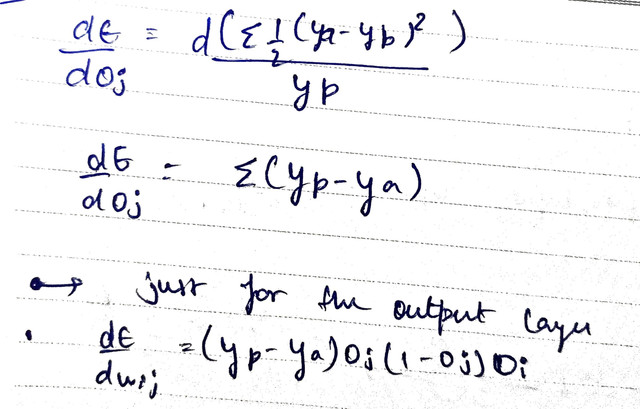 dE/dOj = d(Σ 1/2 (ya - yp)²) / yp
dE/dOj = Σ(yp - ya)
→ just for the output layer
• dE/dwij = (yp - ya) Oj (1 - Oj) Oi